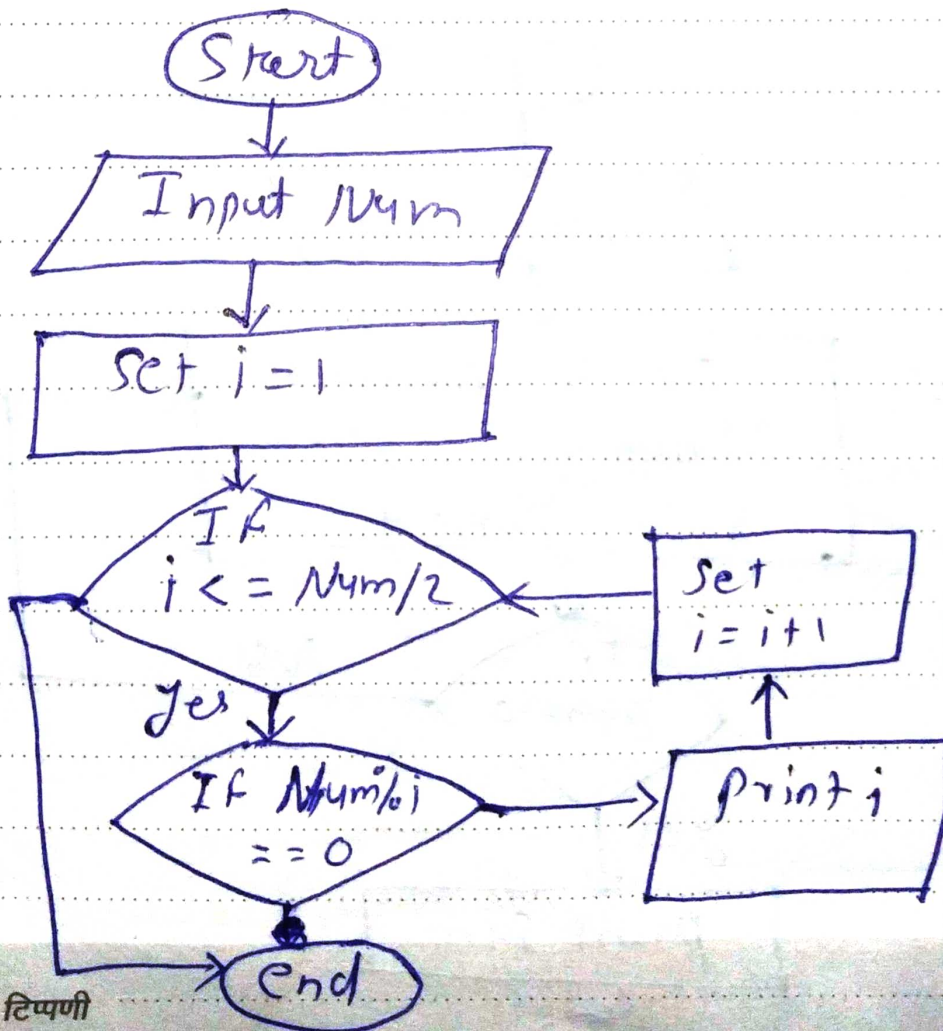 Start
Input Num
Set i = 1
If
i <= Num/2
Set
i = i+1
Yes
If Num%i
== 0
Print i
end
टिप्पणी